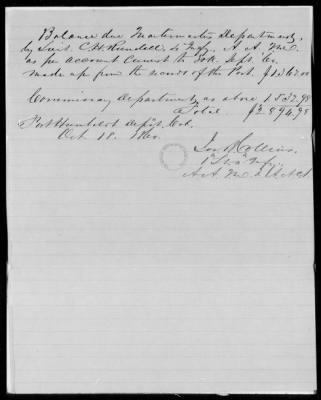 Balance due Quartermaster Department,
by Lieut. C. H. Rundell, 4" Infy. A. A. Q. M.
as per account Current to 30th Sept. 60.
made up from the records of the Post.
Commissary Department, as above 1532.98
Total
Fort Humboldt Cal.
Oct. 18. 1860.
Jos. B. Collins.
1" Lt. 4" Infy.